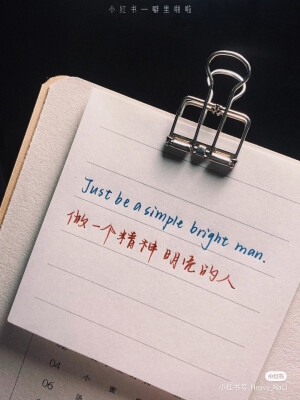 小红书一噼里啪啦
Just be a simple bright man.
做一个精神明亮的人
04
06
小红书